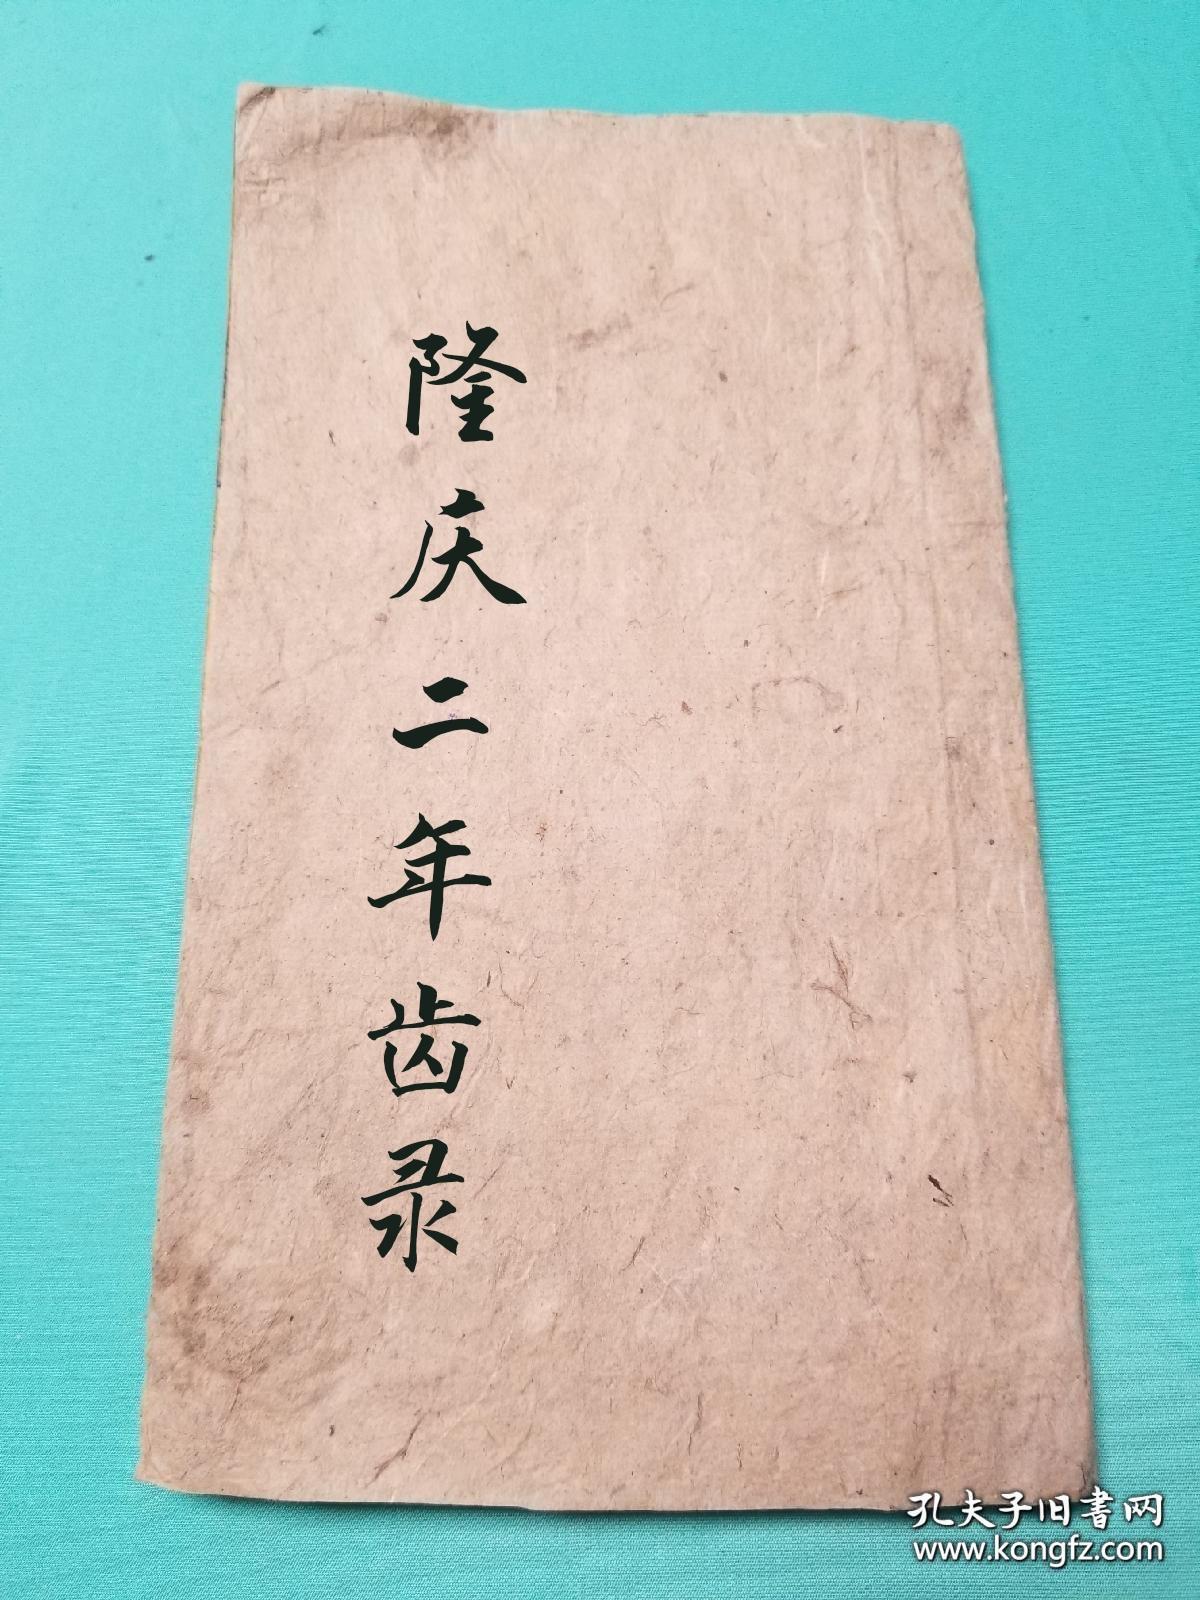 隆庆二年齿录
孔夫子旧書网
www.kongfz.com